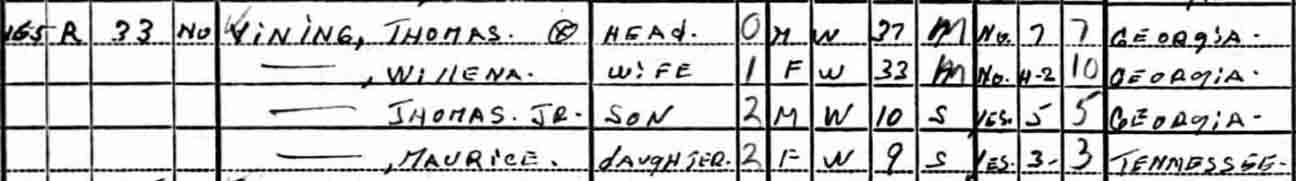 165 R 33 No Vining, Thomas. ⊗ Head. 0 M W 37 M No. 7 7 Georgia.
—, Willena. Wife 1 F W 33 M No. H-2 10 Georgia.
— Thomas. Jr. Son 2 M W 10 S Yes. 5 5 Georgia.
—, Maurice. Daughter. 2 F W 9 S Yes. 3 3 Tennessee.